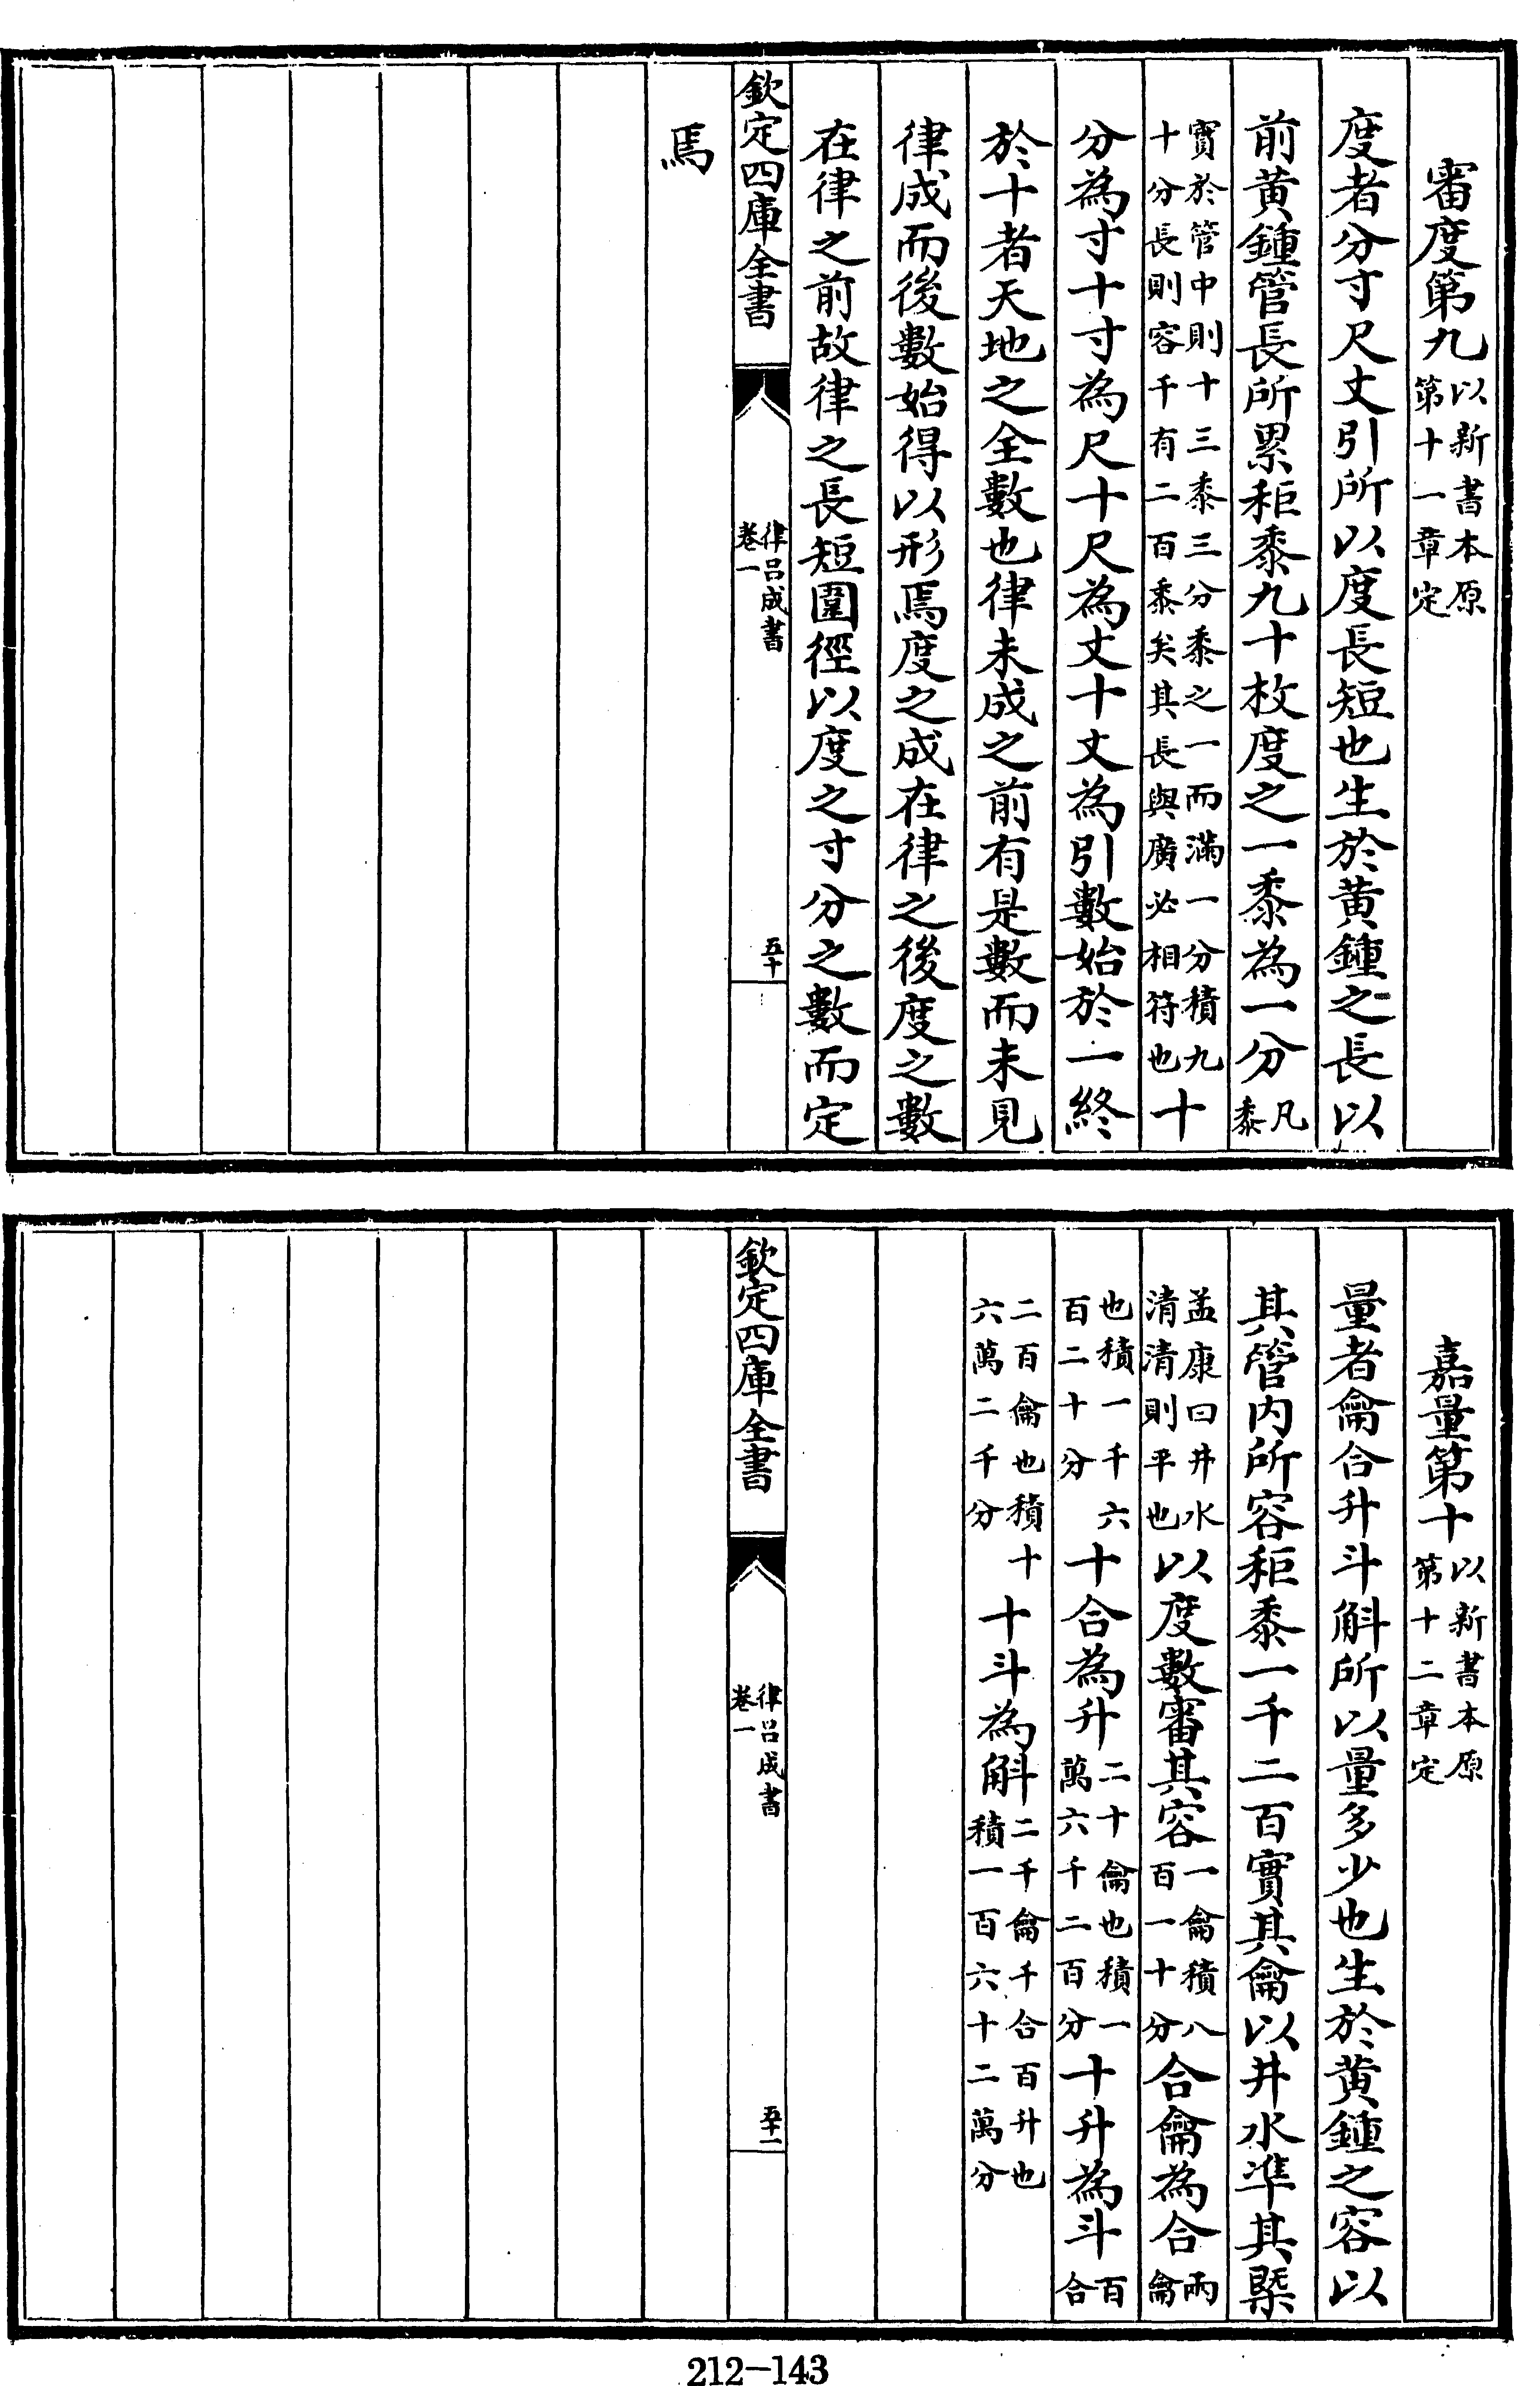 審度第九以新書本原第十一章定
度者分寸尺丈引所以度長短也生於黄鍾之長以
前黄鍾管長所累秬黍九十枚度之一黍為一分凡黍
實於管中則十三黍三分黍之一而滿一分積九十分長則容千有二百黍矣其長與廣必相符也十
分為寸十寸為尺十尺為丈十丈為引數始於一終
於十者天地之全數也律未成之前有是數而未見
律成而後數始得以形焉度之成在律之後度之數
在律之前故律之長短圍徑以度之寸分之數而定
焉
欽定四庫全書 律呂成書卷一 五十
嘉量第十以新書本原第十二章定
量者龠合升斗斛所以量多少也生於黄鍾之容以
其管内所容秬黍一千二百實其龠以井水凖其槩
孟康曰井水清清則平也以度數審其容一龠積八百一十分合龠為合兩龠
也積一千六百二十分十合為升二十龠也積一萬六千二百分十升為斗百合
二百龠也積十六萬二千分十斗為斛二千龠千合百升也積一百六十二萬分
欽定四庫全書 律呂成書卷一 五十一
212-143